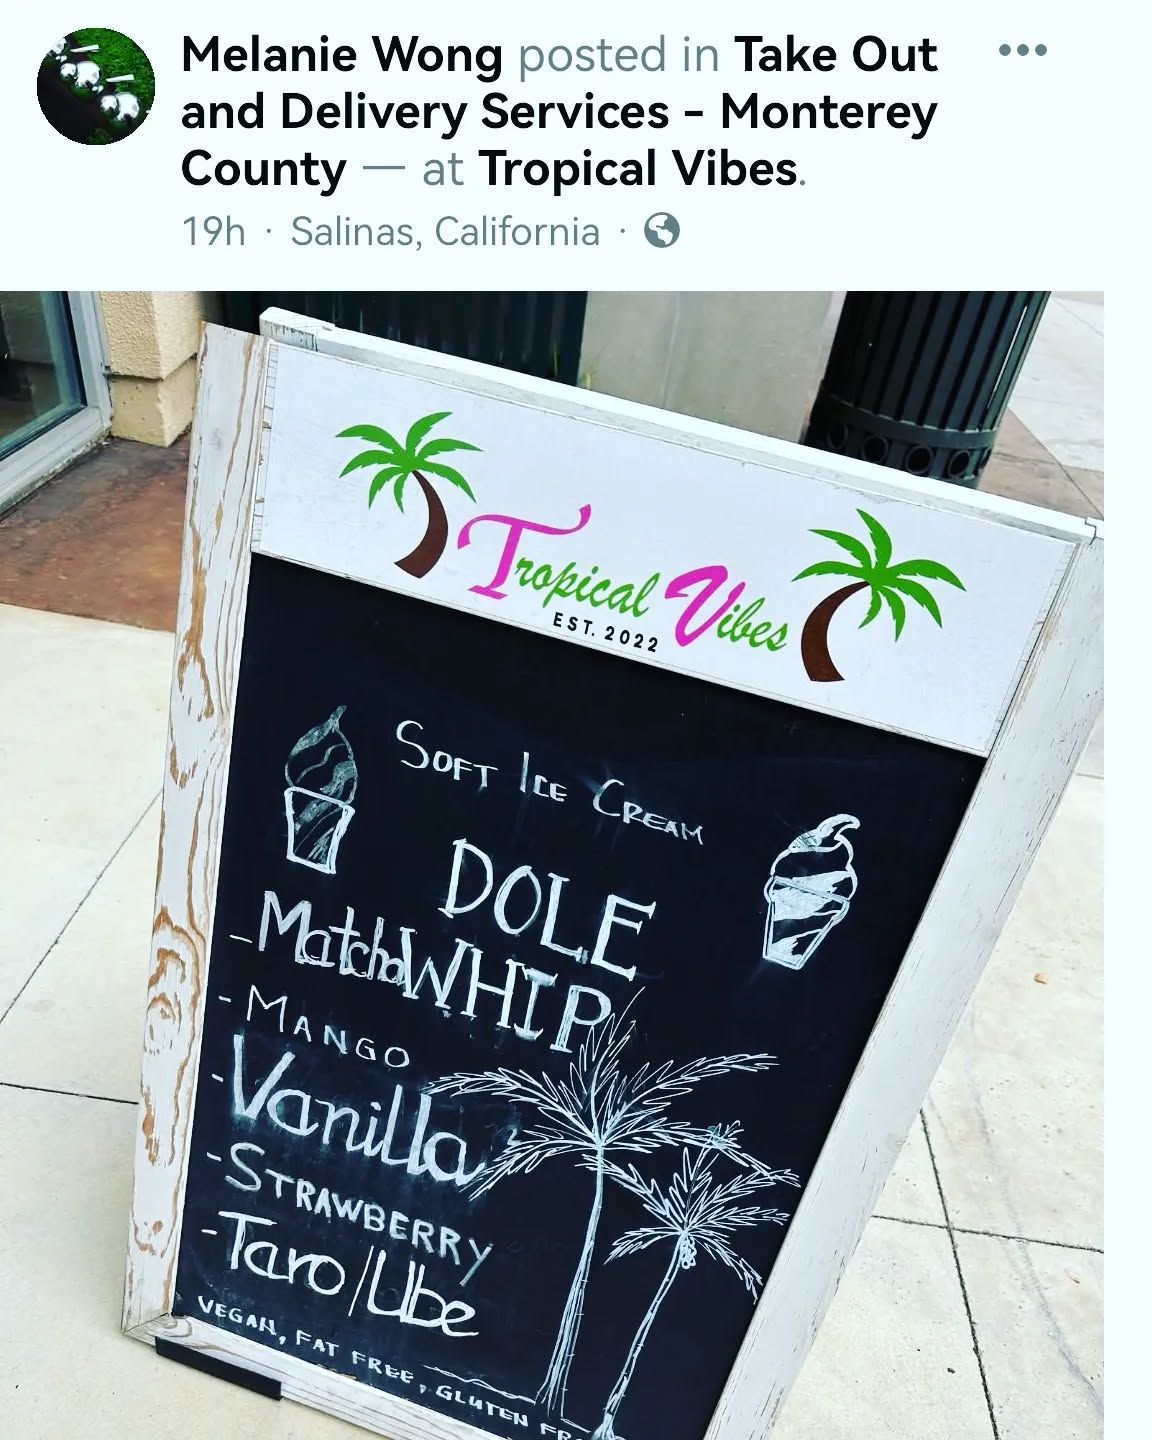 Melanie Wong posted in Take Out
and Delivery Services - Monterey
County — at Tropical Vibes.
19h · Salinas, California ·
Tropical Vibes
EST. 2022
SOFT ICE CREAM
DOLE
WHIP
- Matcha
- MANGO
- Vanilla
- STRAWBERRY
- Taro/Ube
VEGAN, FAT FREE, GLUTEN